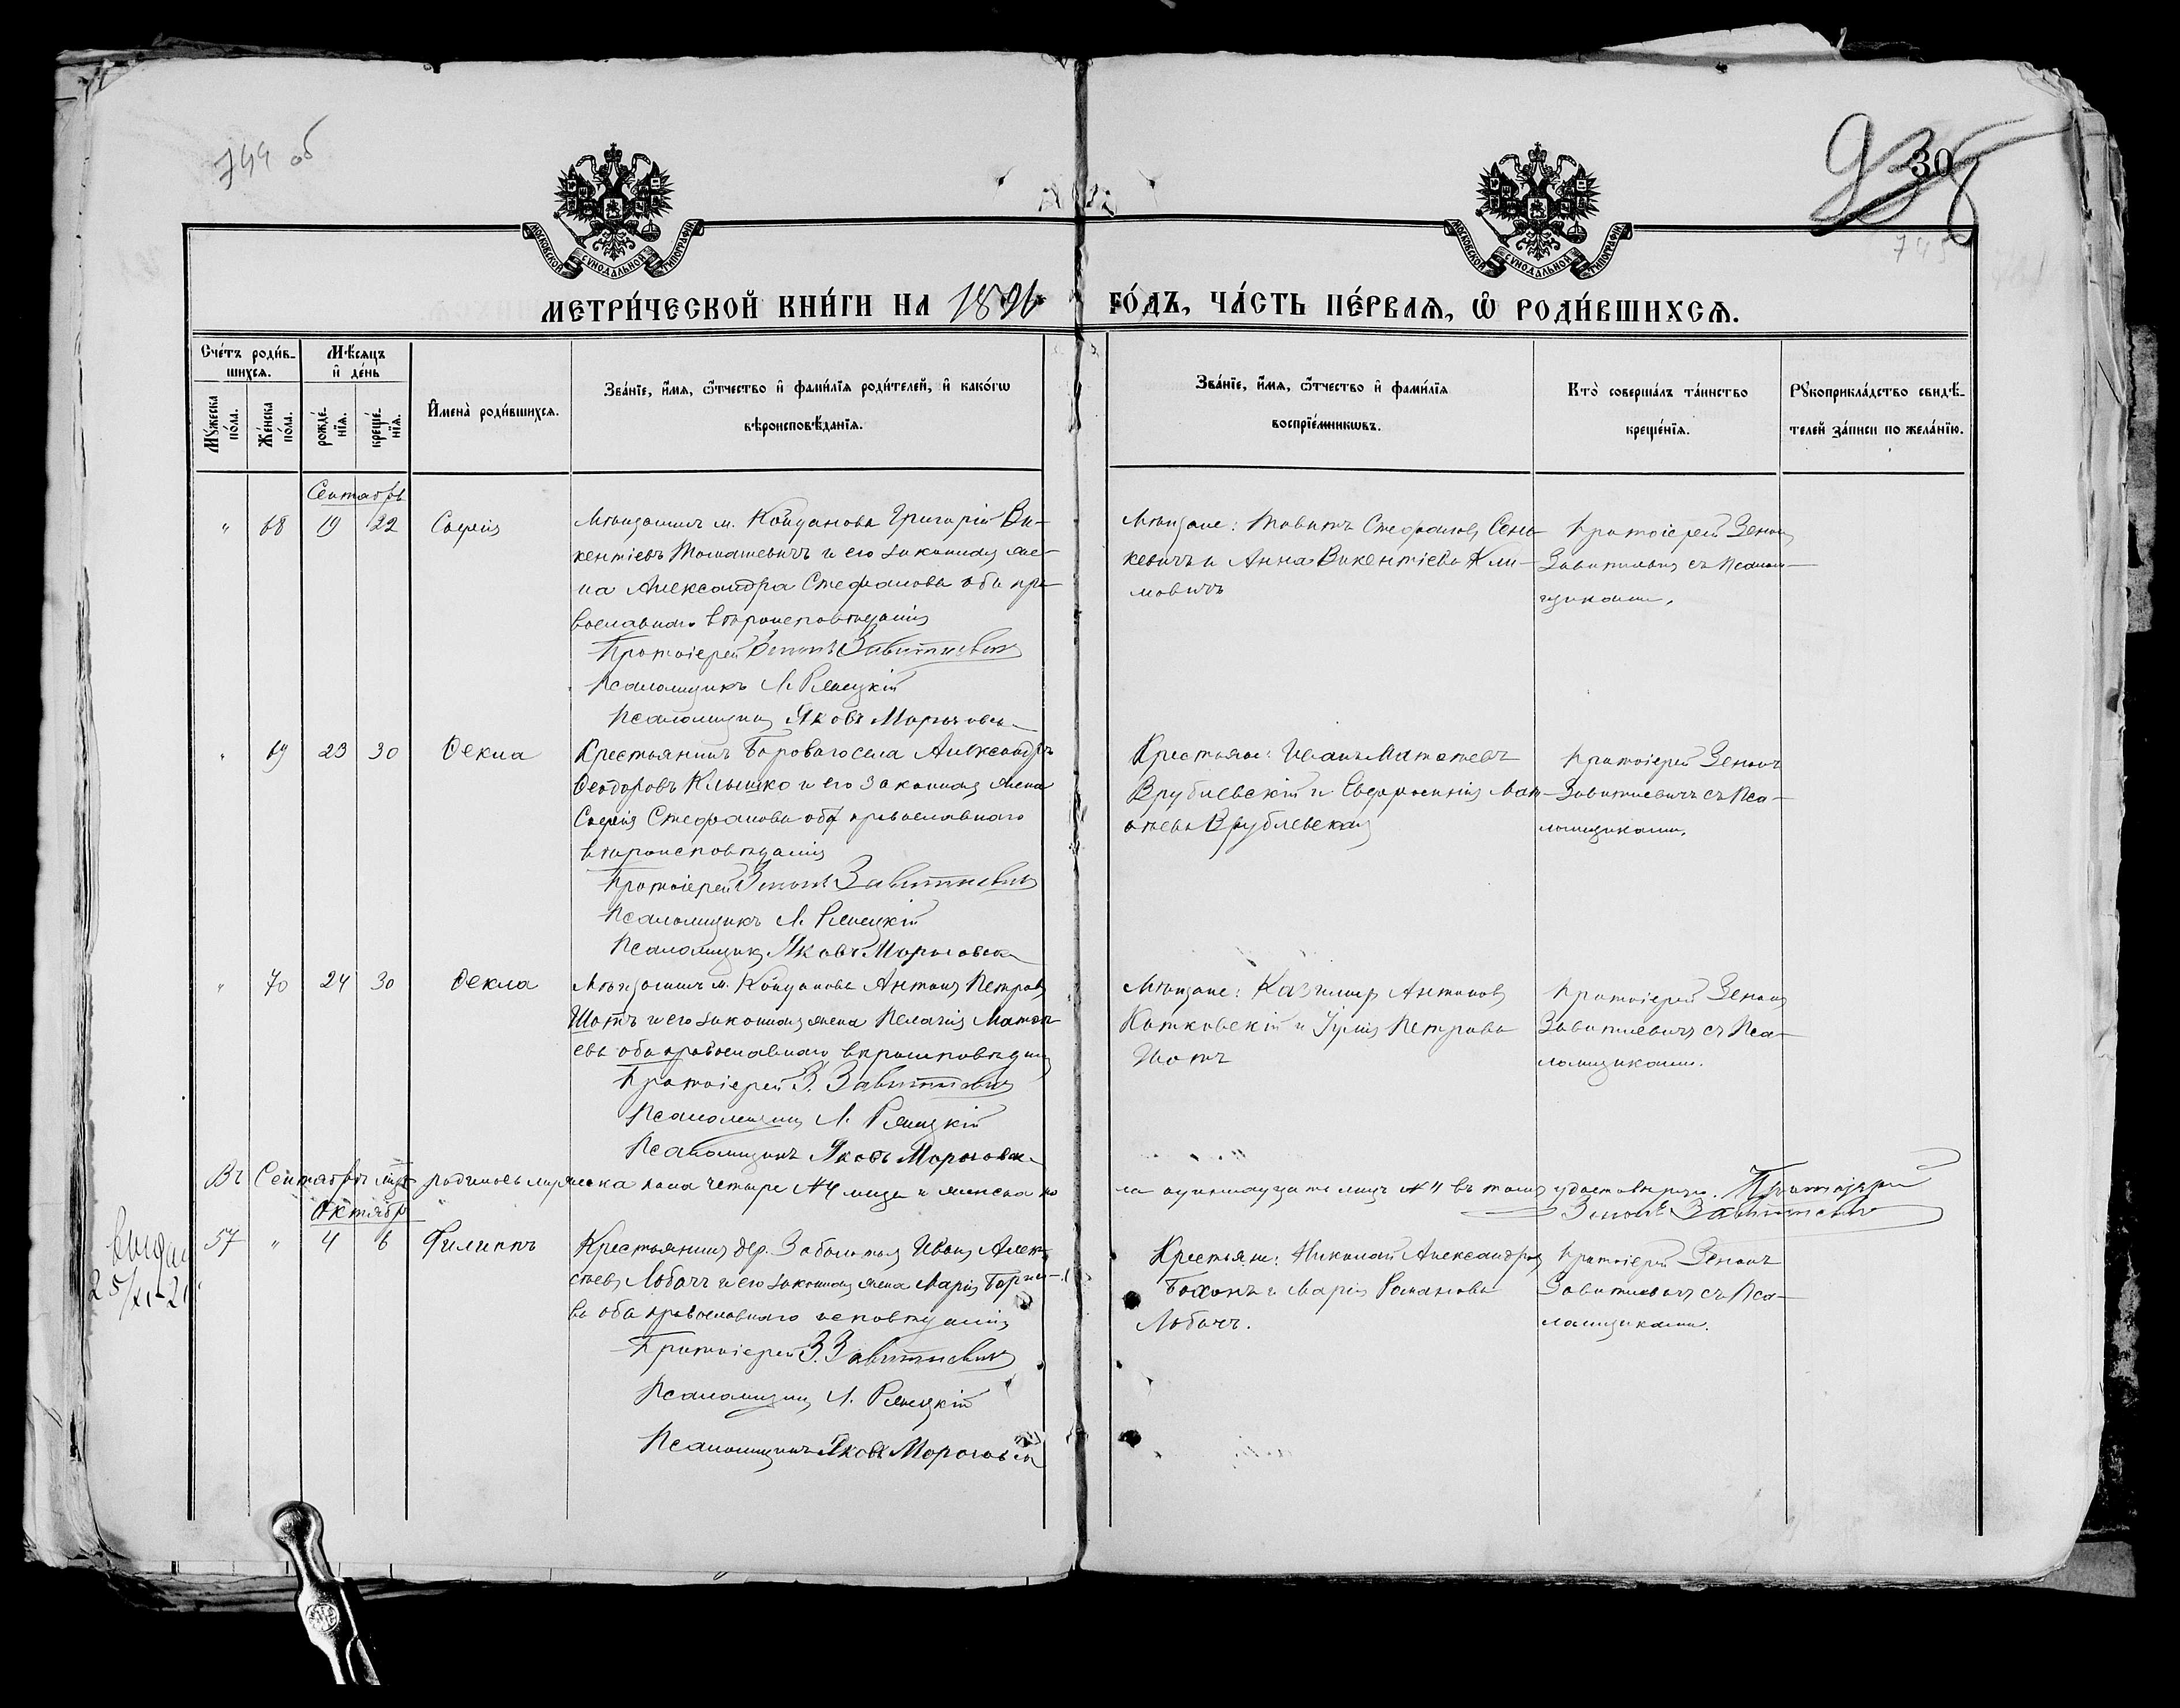 744 об
30
745
МЕТРИ́ЧЕСКОЙ КНИ́ГИ НА 1896 ГО́ДЪ, ЧА́СТЬ ПЕ́РВАѦ, Ѡ РОДИ́ВШИХСѦ.
МОСКОВСКОЙ СУНОДАЛЬНОЙ ТИПОГРАФІИ
МОСКОВСКОЙ СУНОДАЛЬНОЙ ТИПОГРАФІИ
Сче́тъ роди́в-
шихсѧ.
Мꙋжеска по́ла.
Же́нска по́ла.
Мѣ́сѧцъ и де́нь
рожде́-нїѧ.
креще́-нїѧ.
Имена̀ роди́вшихсѧ.
Зва́нїе, и́мѧ, ѻ́тчество и фами́лїѧ роди́телей, и како́гѡ
вѣроисповѣ́данїѧ.
Зва́нїе, и́мѧ, ѻ́тчество и фами́лїѧ
воспрїе́мникѡвъ.
Кто̀ соверша́лъ та́инство
креще́нїѧ.
Рꙋкоприкла́дство свидѣ́-
телей за́писи по жела́нїю.
Сентябрь
" 68 19 22 Софія
Мѣщанинъ м. Койданова Григорій Ви-
кентіевъ Томашевичъ и его законная же-
на Александра Стефанова оба пра-
вославнаго вѣроисповѣданія
Протоіерей Зенонъ Завитневичъ
Псаломщикъ Л. Рженцкій
Псаломщикъ Яковъ
Мѣщане: Стефановъ Сень-
кевичъ и Анна Викентіева Кли-
мовичъ
Протоіерей Зенонъ
Завитневичъ съ псалом-
щиками.
" 69 23 30 Ѳекла
Крестьянинъ Боровагосела Александръ
Ѳеодоровъ Клышко и его законная жена
Софія Стефанова оба православнаго
вѣроисповѣданія
Протоіерей Зенонъ Завитневичъ
Псаломщикъ Л. Рженцкій
Псаломщикъ Яковъ
Крестьяне: Иванъ Матѳеевъ
Врублевскій и Евфросинія Мат-
ѳеева Врублевская
Протоіерей Зенонъ
Завитневичъ съ Пса-
ломщиками.
" 70 24 30 Ѳекла
Мѣщанинъ м. Койданова Антонъ Петровъ
Шотъ и его законная жена Пелагія Матѳе-
ева оба православнаго вѣроисповѣданія
Протоіерей З. Завитневичъ
Псаломщикъ Л. Рженцкій
Псаломщикъ Яковъ
Мѣщане: Казимиръ Антоновъ
Котковскій и Юлія Петрова
Шотъ
Протоіерей Зенонъ
Завитневичъ съ Пса-
ломщиками.
Въ Сентябрѣ мцѣ родилось мужеска пола четыре №4 лица и женска по
ла одиннадцать лицъ №11 въ томъ удостовѣряю. Протоіерей
Зенонъ Завитневичъ
Октябрь
57 " 4 6 Филиппъ
Крестьянинъ дер. Заболотья Иванъ Алек-
сѣевъ Лобачъ и его законная жена Марія
ва оба православнаго исповѣданія
Протоіерей З. Завитневичъ
Псаломщикъ Л. Рженцкій
Псаломщикъ Яковъ
Крестьяне: Николай Александровъ
Боханъ и Марія Романова
Лобачъ.
Протоіерей Зенонъ
Завитневичъ съ Пса-
ломщиками.